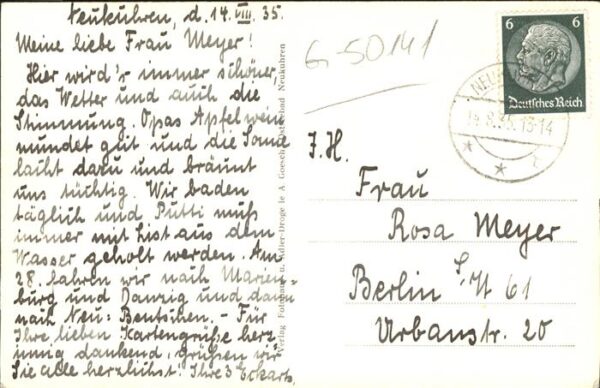 Neukuhren, d. 14. VIII. 35.
Meine liebe Frau Meyer!
Hier wird's immer schöner,
das Wetter und auch die
Stimmung. Opas Apfelwein
mundet gut und die Sonne
lacht dazu und bräunt
uns tüchtig. Wir baden
täglich und Putti muß
immer mit List aus dem
Wasser geholt werden. Am
28. fahren wir nach Marien-
burg und Danzig und dann
nach Neu-Bentschen. - Für
Ihre lieben Kartengrüße herz
dankend, grüßen wir
Sie alle herzlichst! Ihre 3 Eckarts
Verlag Foto u. Adler-Drogerie A Ostseebad Neukuhren
G-50141
6 6
Deutsches Reich
NEU
14.8.35.13-14
Frau
Rosa Meyer
Berlin S/W 61
Urbanstr. 20